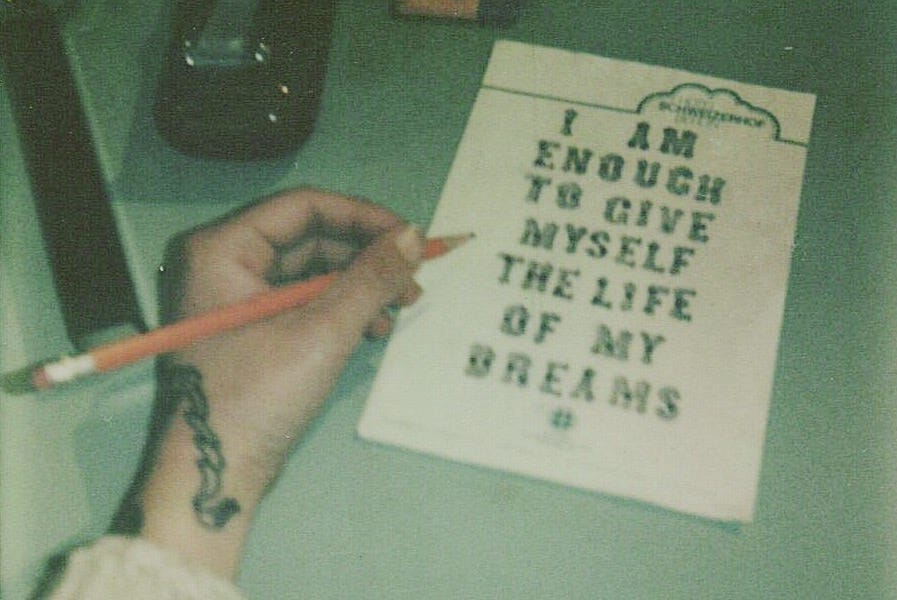 SCHWEIZERHOF
I AM
ENOUGH
TO GIVE
MYSELF
THE LIFE
OF MY
DREAMS